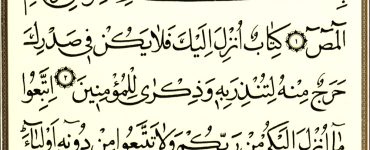 الٓمٓصٓ ١ كِتَابٌ أُنزِلَ إِلَيْكَ فَلَا يَكُن فِى صَدْرِكَ
حَرَجٌ مِّنْهُ لِتُنذِرَ بِهِ وَذِكْرَىٰ لِلْمُؤْمِنِينَ ٢ اتَّبِعُوا
مَا أُنزِلَ إِلَيْكُم مِّن رَّبِّكُمْ وَلَا تَتَّبِعُوا مِن دُونِهِ أَوْلِيَاءَ